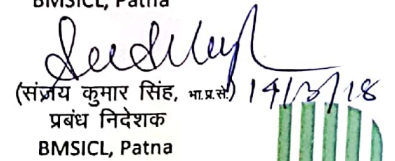 BMSICL, Patna
(संजय कुमार सिंह, भा.प्र.से.) 14/5/18
प्रबंध निदेशक
BMSICL, Patna